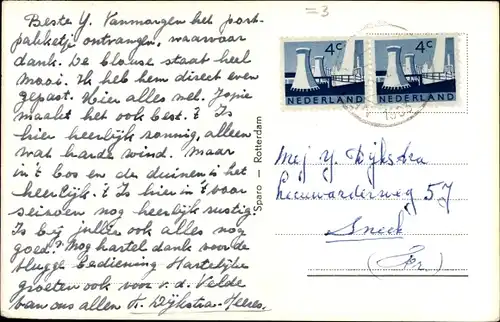 = 3
Beste Y. Vanmorgen het post-
pakketje ontvangen, waarvoor
dank. De blouse staat heel
mooi. Ik heb hem direct even
gepast. Hier alles wel. Jopie
maakt het ook best. 't Is
hier heerlijk zonnig, alleen
wat harde wind. Maar
in 't bos en de duinen is het
heerlijk. 't Is hier in 't voor
seizoen nog heerlijk rustig.
Is bij jullie ook alles nog
goed? Nog hartel dank voor de
vlugge bediening Hartelijke
groeten ook voor v. d. Velde
van ons allen A. Dijkstra-Heeres.
Sparo — Rotterdam
4c NEDERLAND
4c NEDERLAND
Mej Y. Dijkstra
Leeuwarderweg 57
Sneek
(Fr.)